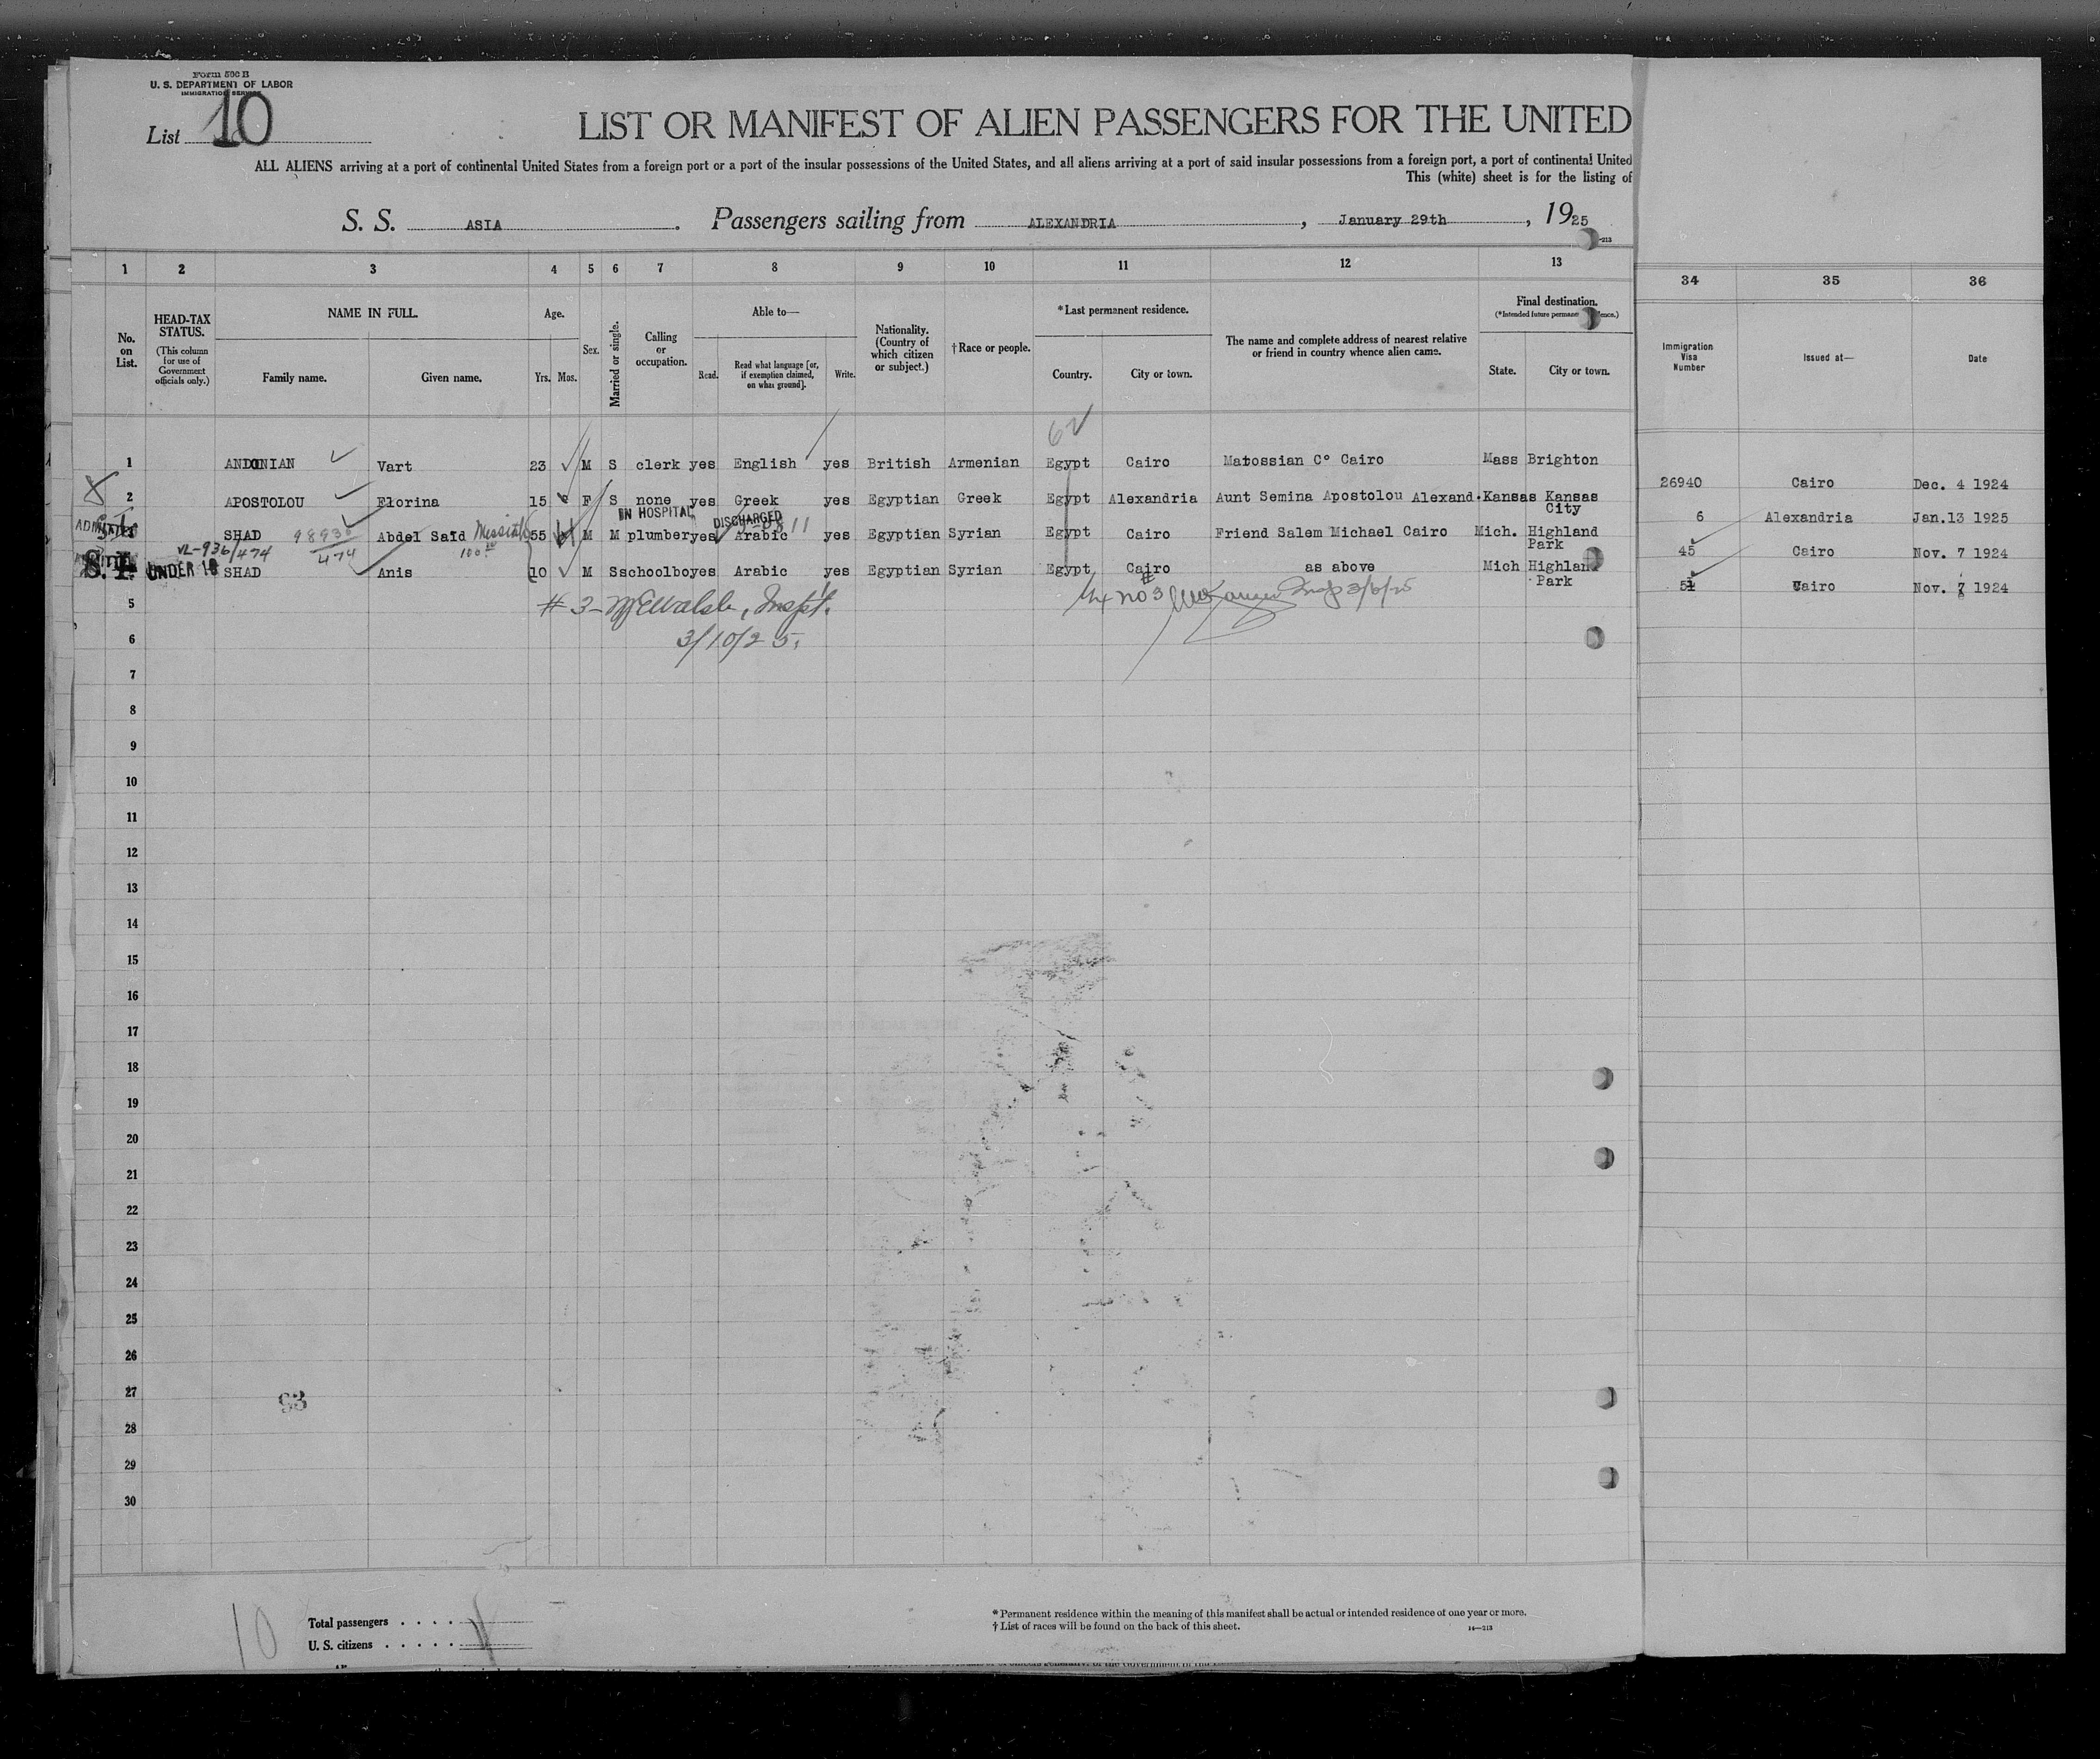 Form 500 B
U. S. DEPARTMENT OF LABOR
IMMIGRATION SERVICE
List 10
LIST OR MANIFEST OF ALIEN PASSENGERS FOR THE UNITED
ALL ALIENS arriving at a port of continental United States from a foreign port or a port of the insular possessions of the United States, and all aliens arriving at a port of said insular possessions from a foreign port, a port of continental United
This (white) sheet is for the listing of
S. S. ASIA. Passengers sailing from ALEXANDRIA, January 29th, 1925
-213
1 2 3 4 5 6 7 8 9 10 11 12 13 34 35 36
No. on List.
HEAD-TAX STATUS. (This column for use of Government officials only.)
NAME IN FULL. Family name. Given name.
Age. Yrs. Mos.
Sex.
Married or single.
Calling or occupation.
Able to— Read. Read what language [or, if exemption claimed, on what ground]. Write.
Nationality. (Country of which citizen or subject.)
†Race or people.
*Last permanent residence. Country. City or town.
The name and complete address of nearest relative or friend in country whence alien came.
Final destination. (*Intended future permanent residence.) State. City or town.
Immigration Visa Number
Issued at—
Date
6
1 ANDONIAN Vart 23 M S clerk yes English yes British Armenian Egypt Cairo Matossian C° Cairo Mass Brighton 26940 Cairo Dec. 4 1924
2 APOSTOLOU Florina 15 F S none yes Greek yes Egyptian Greek Egypt Alexandria Aunt Semina Apostolou Alexand. Kansas Kansas City 6 Alexandria Jan.13 1925
IN HOSPITAL DISCHARGED
ADMITTED SHAD Abdel Saïd 55 M M plumber yes Arabic yes Egyptian Syrian Egypt Cairo Friend Salem Michael Cairo Mich. Highland Park 45 Cairo Nov. 7 1924
VL-936/474 98936/474 100
S. I. UNDER 16 SHAD Anis 10 M S schoolbo yes Arabic yes Egyptian Syrian Egypt Cairo as above Mich Highland Park 51 Cairo Nov. 1924
5 # 3- Walsh, Inspt.
no 3 Insp 3/6/25
6 3/10/25.
7
8
9
10
11
12
13
14
15
16
17
18
19
20
21
22
23
24
25
26
27
93
28
29
30
10
Total passengers . . . .
U. S. citizens . . . . .
* Permanent residence within the meaning of this manifest shall be actual or intended residence of one year or more.
† List of races will be found on the back of this sheet.
14—213